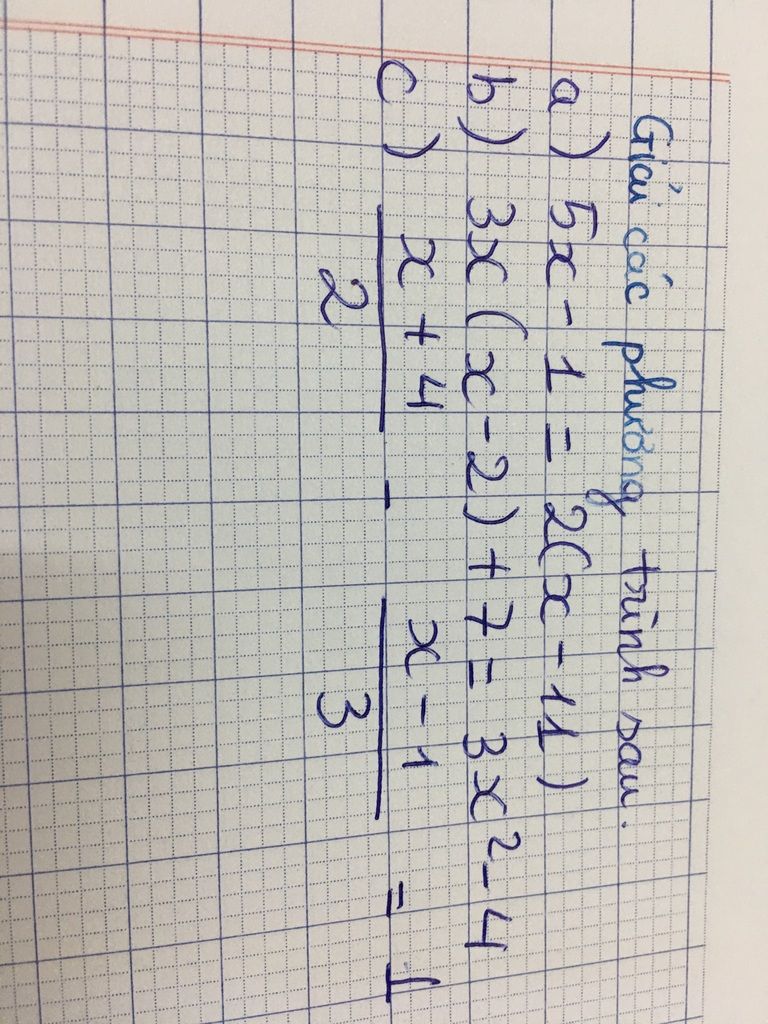 Giải các phương trình sau.
a) 5x - 1 = 2(x - 11)
b) 3x(x - 2) + 7 = 3x² - 4
c) \frac{x + 4}{2} - \frac{x - 1}{3} = 1